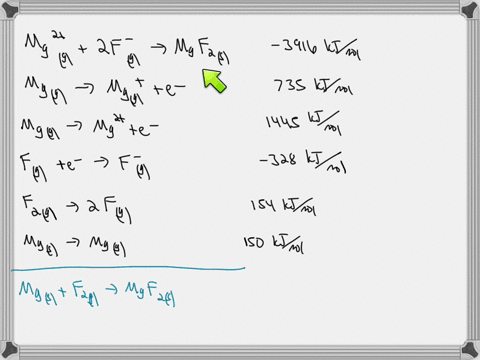 Mg²⁺(g) + 2F⁻(g) → MgF₂(s) -3916 kJ/mol
Mg(g) → Mg(g)⁺ + e- 735 kJ/mol
Mg(g) → Mg²⁺ + e- 1445 kJ/mol
F(g) + e- → F⁻(g) -328 kJ/mol
F₂(g) → 2F(g) 154 kJ/mol
Mg(s) → Mg(g) 150 kJ/mol
Mg(s) + F₂(g) → MgF₂(s)